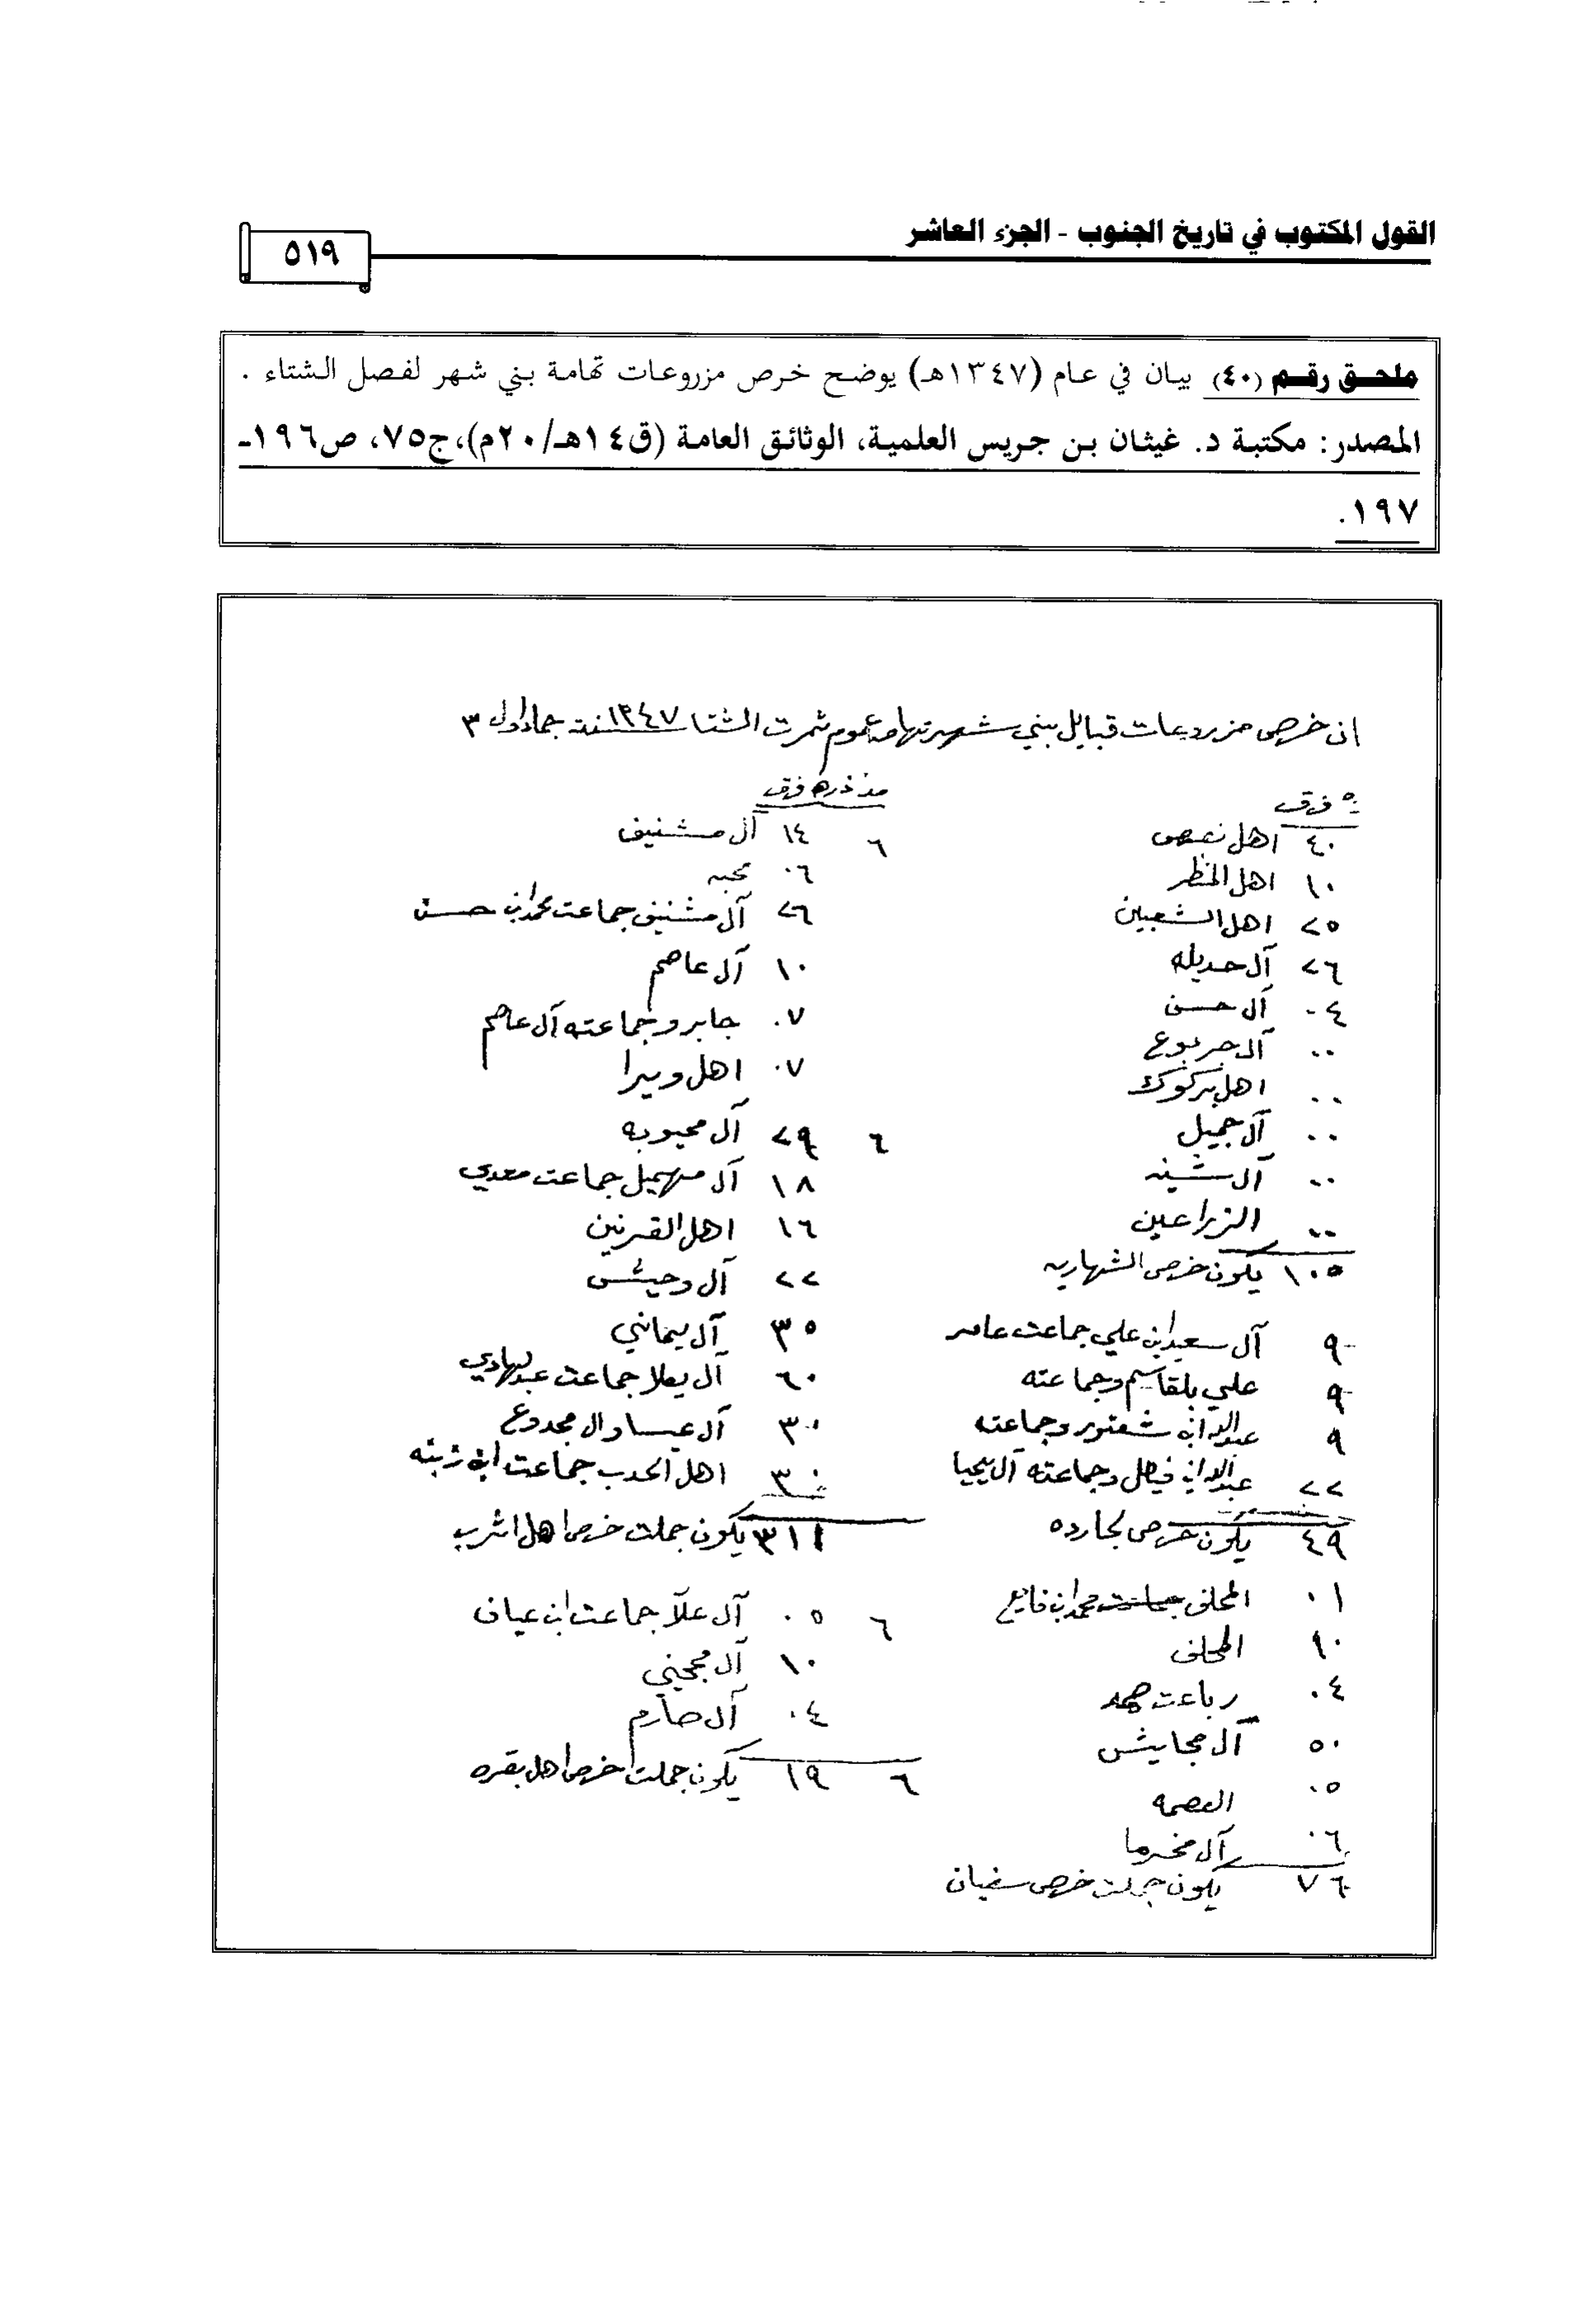 القول المكتوب في تاريخ الجنوب - الجزء العاشر
٥١٩
ملحق رقم (٤٠) بيان في عام (١٣٤٧هـ) يوضح خرص مزروعات تهامة بني شهر لفصل الشتاء .
المصدر: مكتبة د. غيثان بن جريس العلمية، الوثائق العامة (ق١٤هـ/٢٠م)،ج٧٥، ص١٩٦-
١٩٧.
ان خرص مزروعات قبايل بني شهر تهامه عموم ثمرت الشتا ١٣٤٧ سنة جماد اول ٣
فرق
٤٠ اهل نعص
١٠ اهل المنظر
٢٥ اهل الشعبين
٢٦ آل حديله
٠٤ آل حسن
٠٠ آل جربوع
٠٠ اهل بركوك
٠٠ آل جميل
٠٠ آل شينه
٠٠ الزراعين
١٠٥ يكون خرص الشهاريه
٩ آل سعيد ابن علي جماعت عامر
٩ علي بلقاسم وجماعته
٩ عبدالله ابن شعتور وجماعته
٢٢ عبدالله ابن فيصل وجماعته آل يحيا
٤٩ يكون خرص لجارده
٠١ المحلف محمد ابن فايع
١٠ المحلف
٠٤ رباعت حمد
٥٠ آل مجايش
٠٥ العصمه
٠٦ آل مخرما
٧٦ يكون جملت خرص سفيان
ذره فرق
٦ ١٤ آل مشنيف
٠٦
٢٦ آل مشنيف جماعت محمد ابن حسن
١٠ آل عاصم
٠٧ جابر وجماعته آل عاصم
٠٧ اهل وبيرا
٦ ٢٩ آل محبوبه
١٨ آل مهيل جماعت معدي
١٦ اهل القرنين
٢٢ آل وحيش
٣٥ آل يماني
٦٠ آل يعلا جماعت عبدالهادي
٣٠ آل عيسا وال مجدوع
٣٠ اهل الحدب جماعت ابن زبنه
٣١١ يكون جملت خرص اهل اثرب
٦ ٠٥ آل علآ جماعت ابن عيان
١٠ آل مجحني
٠٤ آل صارم
٦ ١٩ يكون جملت خرص اهل بقره